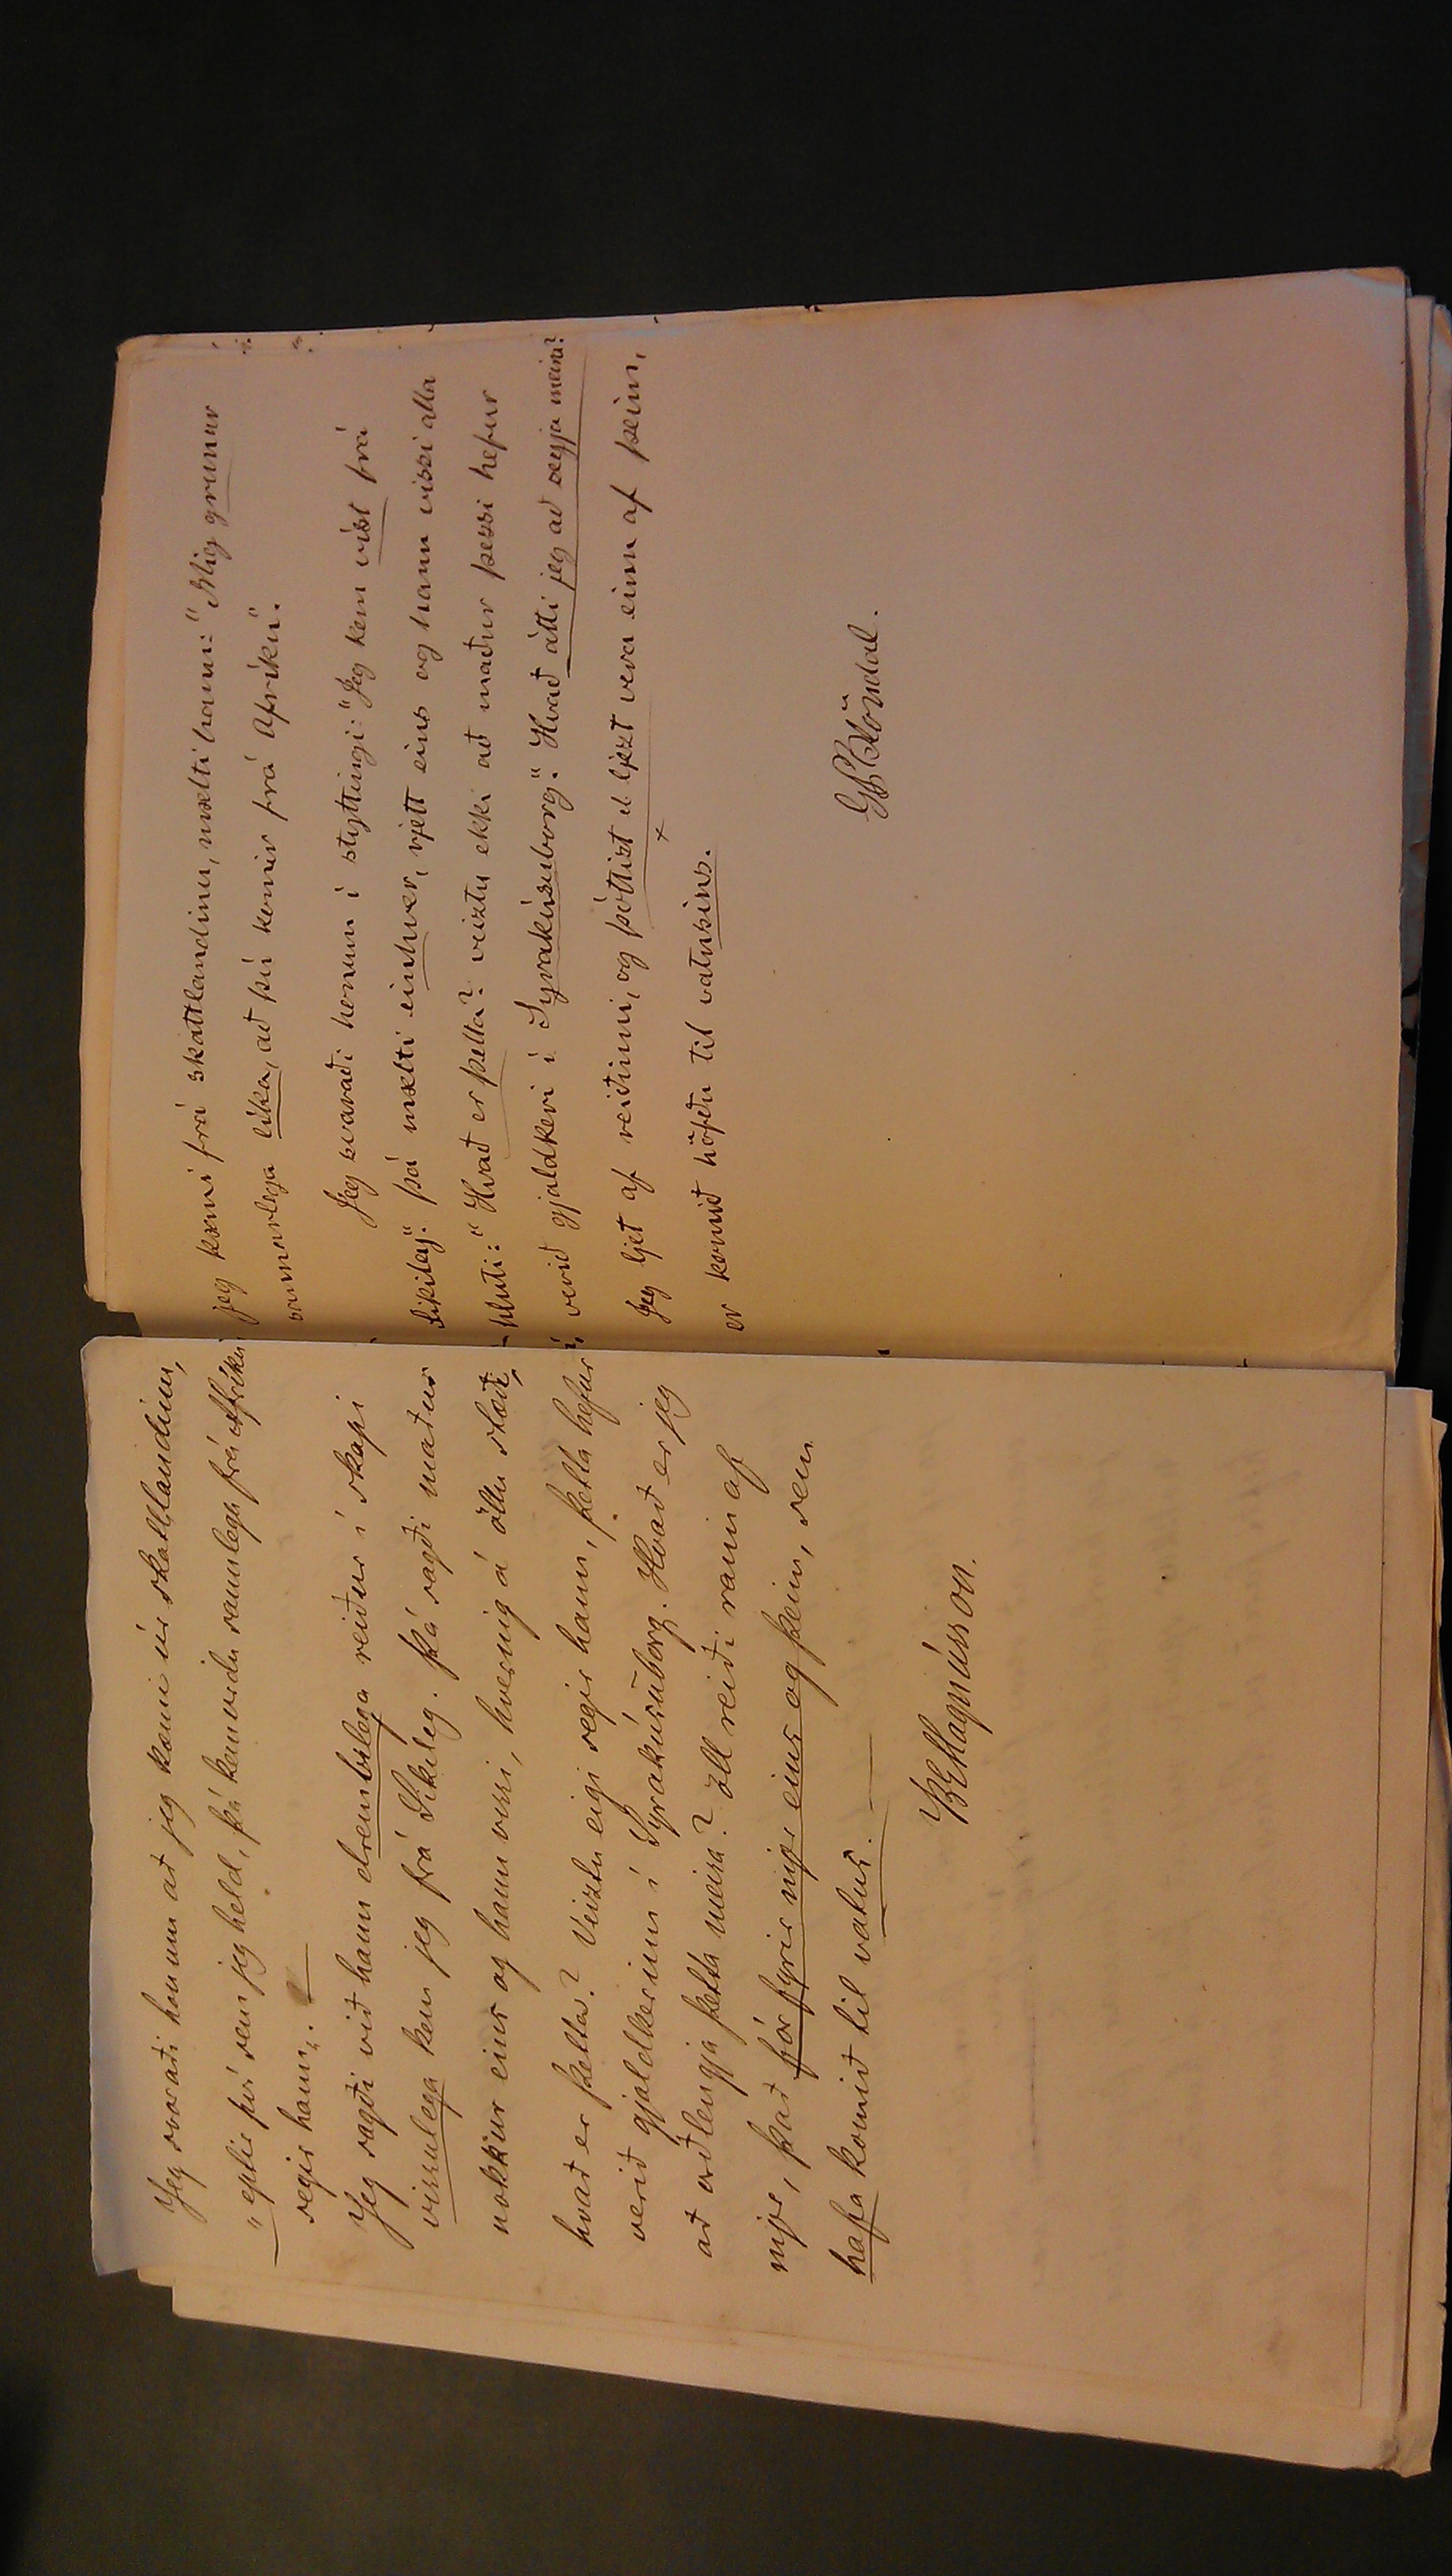 Jeg svaraði honum að jeg kæmi úr skattlandinu,
„eptir því sem jeg held, þá kemurðu sannlega frá Afríku
segir hann“.
Jeg sagði við hann drembilega reiður í skapi
vissulega kem jeg frá Sikiley. Þá sagði maður
nokkur eins og hann vissi, hvernig á öllu stæði,
hvað er þetta? Veiztu eigi segir hann, þetta hefur
verið gjaldkerinn í Syrakúsuborg. Hvað er jeg
að orðlengja þetta meira? öll reiði rann af
mjer, það fór fyrir mjer eins og þeim, sem
hafa komið til vatns.
BEMagnússon.
jeg kæmi frá skattlandinu, mælti hann: "Mig grunar
sannarlega líka, að þú komir frá Afríku".
Jeg svaraði honum í styttingi: "Jeg kem víst frá
Sikiley". Þá mælti einhver, rjett eins og hann vissi alla
hluti: "Hvað er þetta? veiztu ekki að maður þessi hefur
verið gjaldkeri í Syrakúsuborg". Hvað átti jeg að segja meira?
Jeg ljet af reiðinni, og þóttist el ljezt vera einn af þeim,
er komið höfðu til vatnsins.
GPBlöndal.